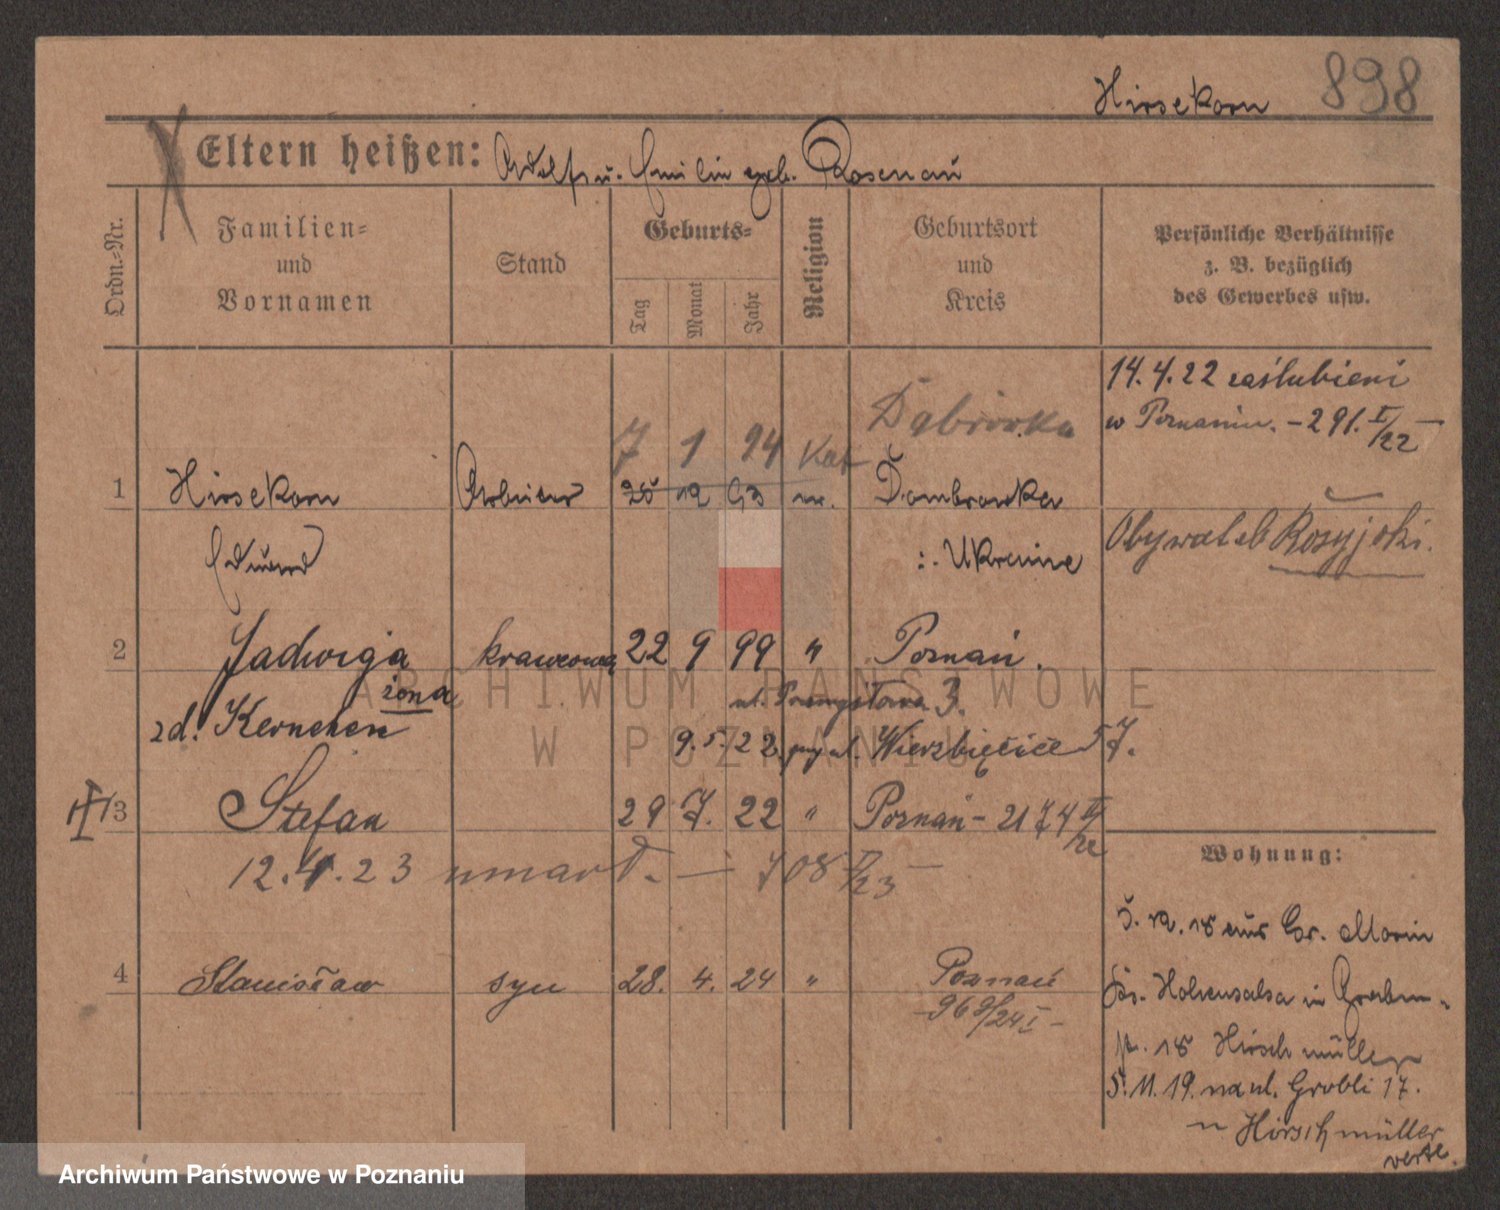 Hirsekorn 898
Eltern heißen: Adolf u. Emilie geb. Rosenau
Ordn.-Nr.
Familien-
und
Vornamen
Stand
Geburts-
Tag
Monat
Jahr
Religion
Geburtsort
und
Kreis
Persönliche Verhältnisse
z. B. bezüglich
des Gewerbes usw.
14.4.22 zaślubieni
w Poznaniu. - 291. I/22
7 1 94 Kat Dąbrówka
1 Hirsekorn Arbeiter 25 12 93 Dombrowka
Eduard Ukraine
Obywatel Rosyjski.
2 Jadwiga krawcowa 22 9 99 " Poznań.
żona
zd. Kernchen
ul. Przemysława 3.
9.5.22 przy ul. Wierzbięcice 57.
3 Stefan 29 7. 22 " Poznań - 2174
12.4.23 umarł. - 708 /23 -
4 Stanisław syn 28. 4. 24 " Poznań
- 968/24 I -
Wohnung:
5. 12. 18 aus Gr. Morin
Hohensalza in Graben-
18 Hirschmüller
5.11.19. na ul. Grobli 17.
Hirschmüller
verte.
ARCHIWUM PAŃSTWOWE
W POZNANIU
Archiwum Państwowe w Poznaniu